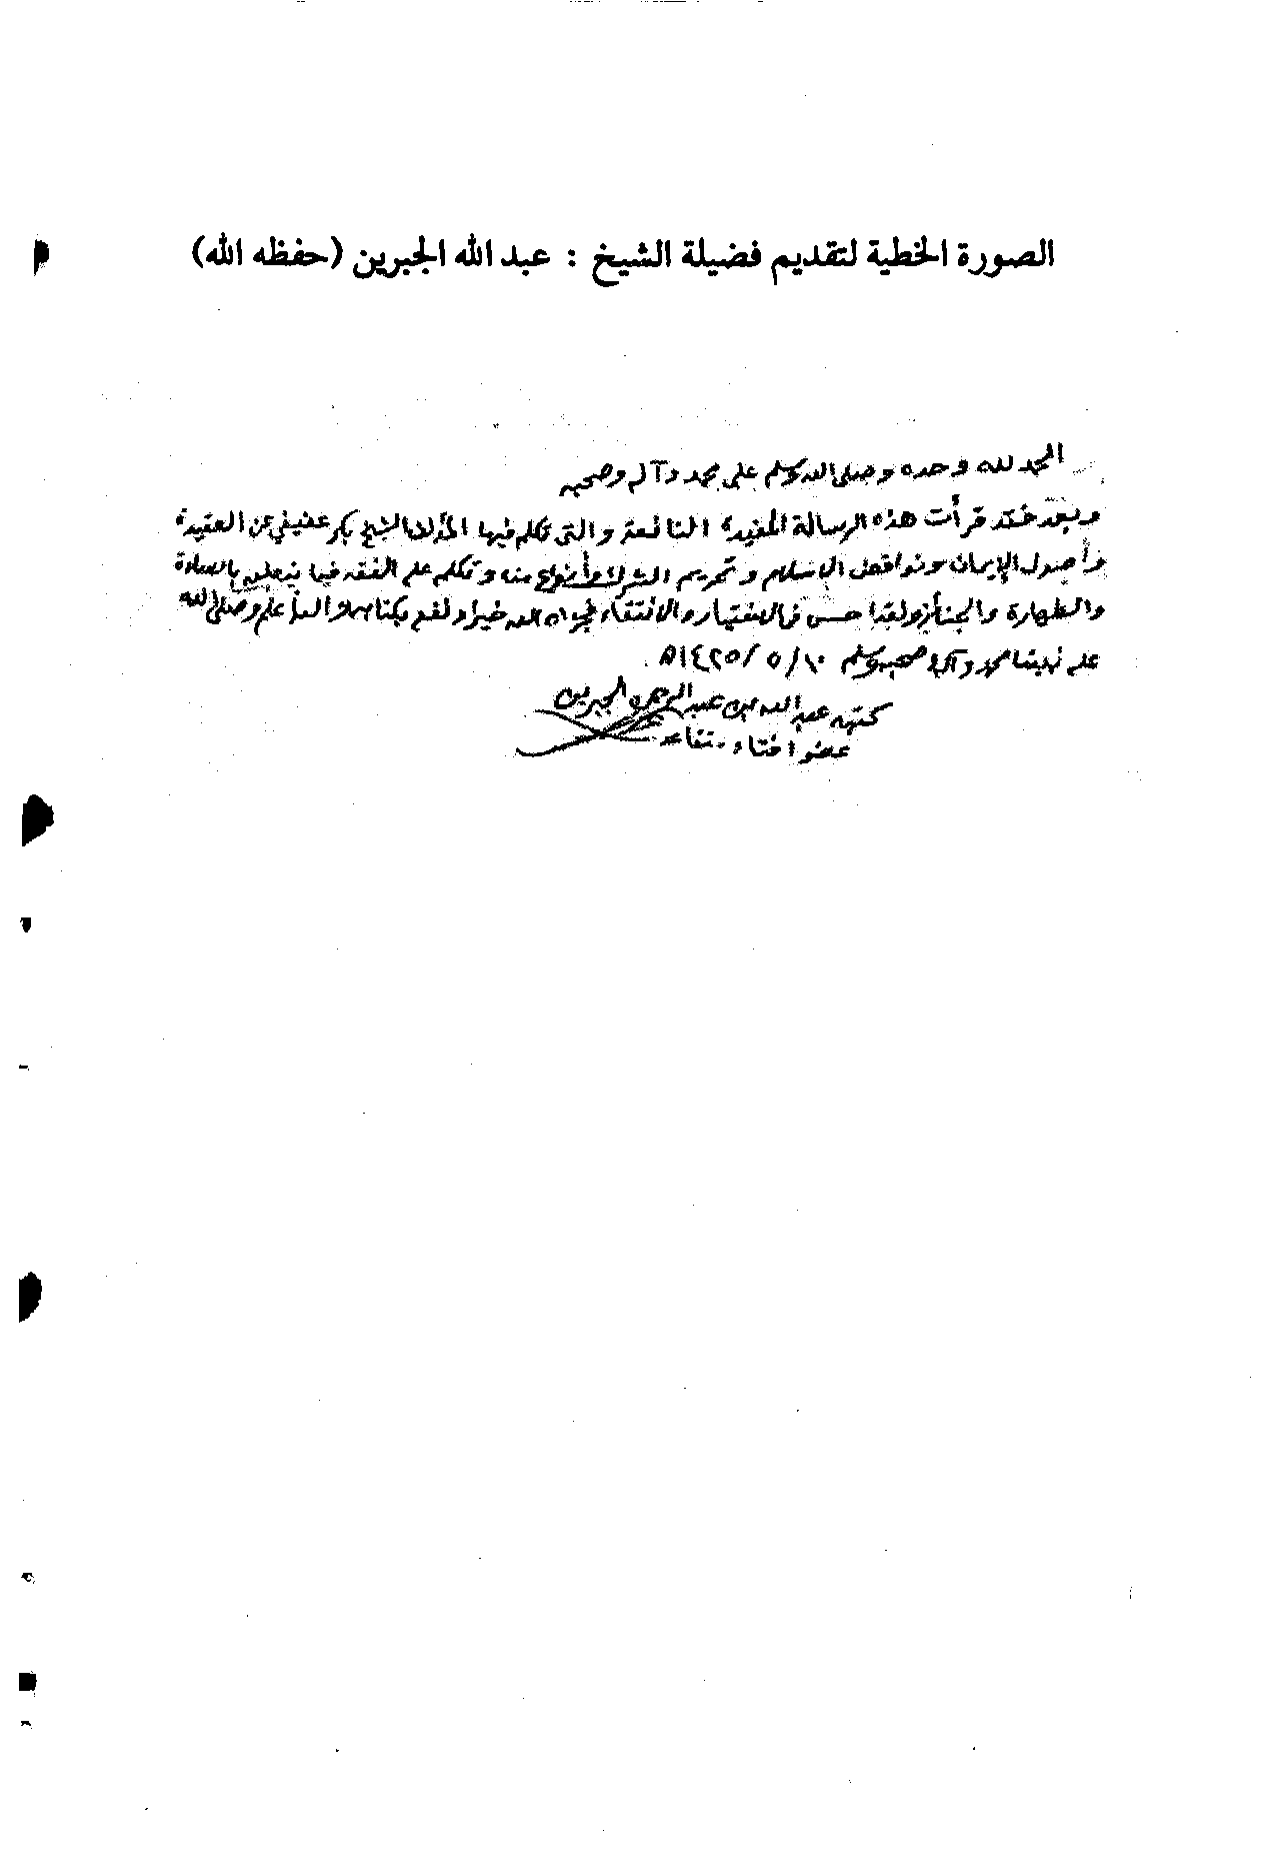 الصورة الخطية لتقديم فضيلة الشيخ : عبد الله الجبرين (حفظه الله)
الحمد لله وحده وصلى الله وسلم على محمد وآله وصحبه
وبعد فقد قرأت هذه الرسالة المفيدة النافعة والتي تكلم فيها المؤلف الشيخ بكر عفيفي عن العقيدة
وأصول الإيمان ونواقض الإسلام وتحريم الشرك وأنواع منه وتكلم على الفقه فيما يتعلق بالصلاة
والطهارة والجنائز ولقد أحسن في الاختيار والانتقاء فجزاه الله خيرا ونفع بكتابه والله أعلم وصلى الله
على نبينا محمد وآله وصحبه وسلم ١٠/٥/١٤٢٥هـ.
كتبه عبد الله بن عبد الرحمن الجبرين
عضو افتاء متقاعد